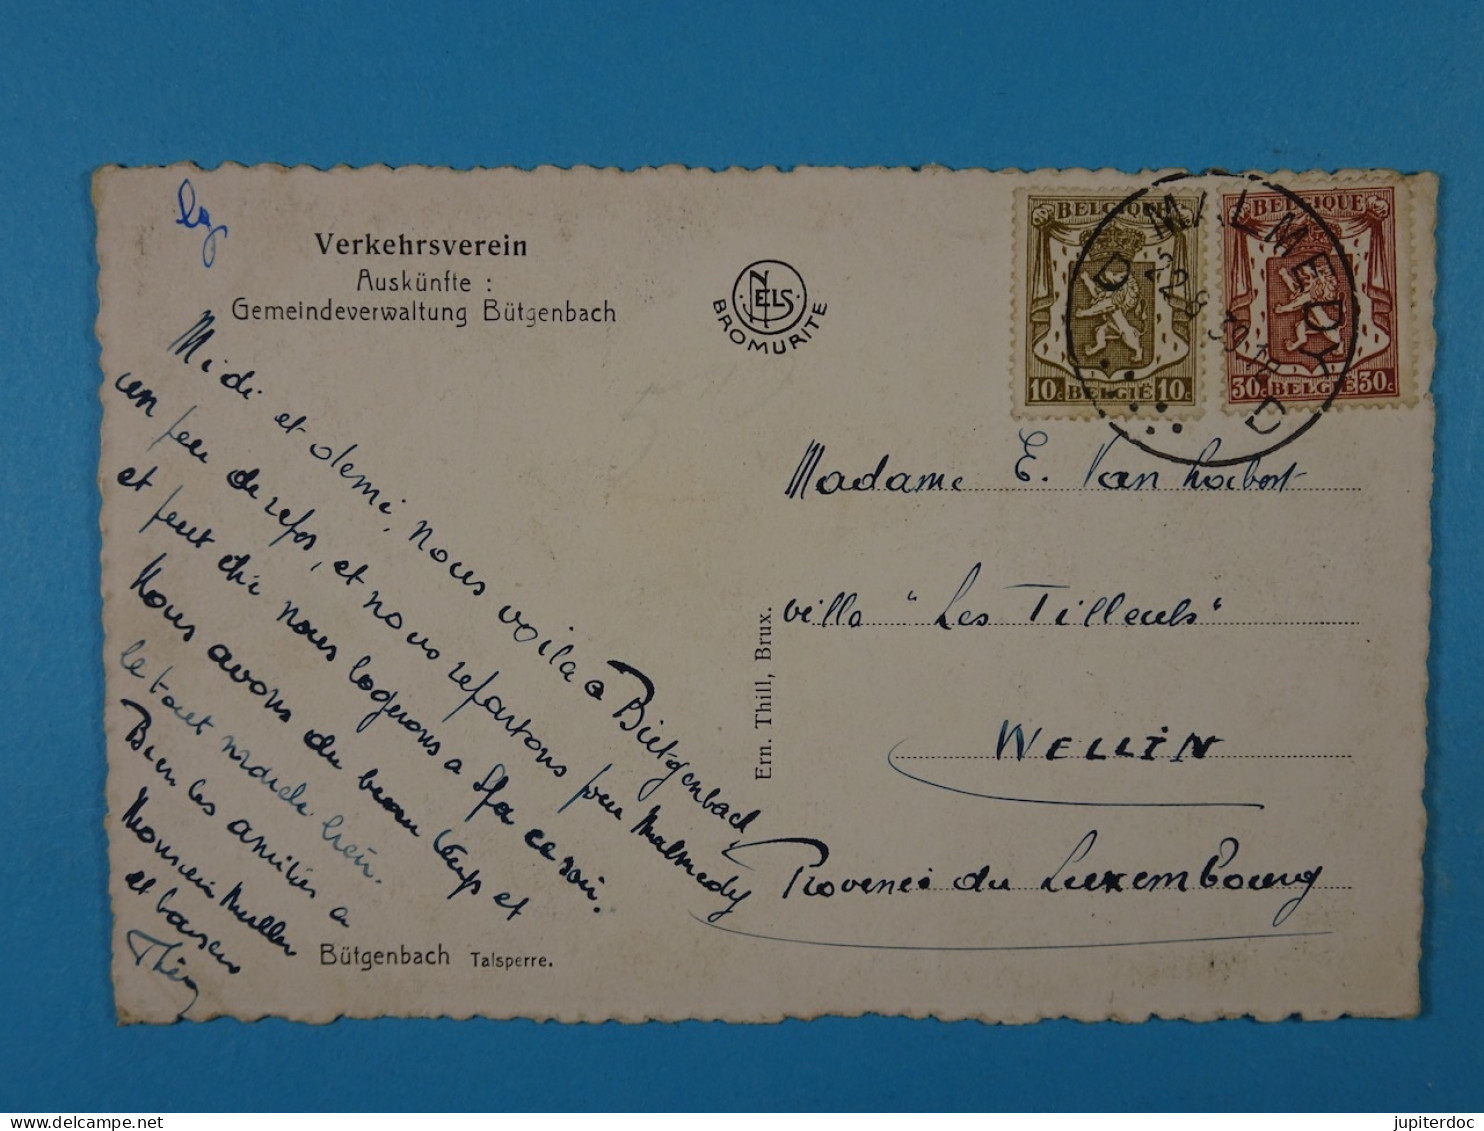 Verkehrsverein
Auskünfte :
Gemeindeverwaltung Bütgenbach
NELS
BROMURITE
BELGIQUE
10c BELGIË 10c
BELGIQUE
30c BELGIË 30c
MALMEDY
22 8
D D
Midi et demi, nous voila a Bütgenbach,
un peu de repos, et nous repartons pour Malmedy
et peut être nous logerons a Spa ce soir.
Nous avons du beau temps et
le tout marche bien.
Bien les amitiés a
Monsieur Muller
et baisers
Madame E. Van
villa "Les Tilleuls"
WELLIN
Province du Luxembourg
Ern. Thill, Brux.
Bütgenbach Talsperre.
jupiterdoc
www.delcampe.net